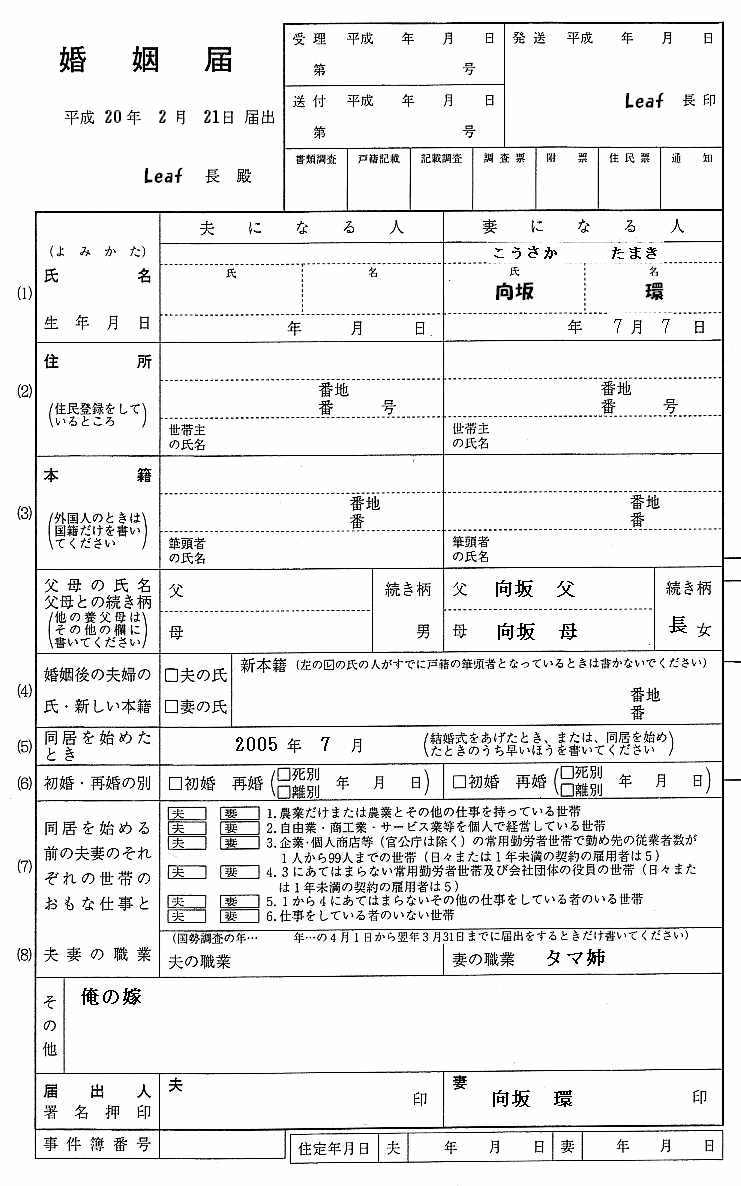 婚姻届
平成 20年 2月 21日 届出
Leaf 長 殿
受理 平成 年 月 日
第 号
送付 平成 年 月 日
第 号
発送 平成 年 月 日
Leaf 長 印
書類調査 戸籍記載 記載調査 調査票 附票 住民票 通知
夫になる人 妻になる人
(よみかた) こうさか たまき
(1) 氏名 氏 名 氏 名
向坂 環
生年月日 年 月 日 年 7月 7日
(2) 住所
番地 番地
(住民登録をして 番 号 番 号
いるところ) 世帯主 世帯主
の氏名 の氏名
(3) 本籍
番地 番地
(外国人のときは 番 番
国籍だけを書い
てください) 筆頭者 筆頭者
の氏名 の氏名
父母の氏名 父 続き柄 父 向坂 父 続き柄
父母との続き柄
(他の養父母は
その他の欄に 母 男 母 向坂 母 長 女
書いてください)
(4) 婚姻後の夫婦の □夫の氏 新本籍 (左の☑の氏の人がすでに戸籍の筆頭者となっているときは書かないでください)
氏・新しい本籍 □妻の氏 番地
番
(5) 同居を始めた 2005年 7月 (結婚式をあげたとき、または、同居を始め
とき たときのうち早いほうを書いてください)
(6) 初婚・再婚の別 □初婚 再婚 (□死別 □離別 年 月 日) □初婚 再婚 (□死別 □離別 年 月 日)
(7) 同居を始める
前の夫妻のそれ
ぞれの世帯の
おもな仕事と
夫 妻 1.農業だけまたは農業とその他の仕事を持っている世帯
夫 妻 2.自由業・商工業・サービス業等を個人で経営している世帯
夫 妻 3.企業・個人商店等(官公庁は除く)の常用勤労者世帯で勤め先の従業者数が
1人から99人までの世帯(日々または1年未満の契約の雇用者は5)
夫 妻 4.3にあてはまらない常用勤労者世帯及び会社団体の役員の世帯(日々また
は1年未満の契約の雇用者は5)
夫 妻 5.1から4にあてはまらないその他の仕事をしている者のいる世帯
夫 妻 6.仕事をしている者のいない世帯
(8) 夫妻の職業
(国勢調査の年… 年…の4月1日から翌年3月31日までに届出をするときだけ書いてください)
夫の職業 妻の職業 タマ姉
その他 俺の嫁
届出人 夫 印 妻 向坂 環 印
署名押印
事件簿番号 住定年月日 夫 年 月 日 妻 年 月 日